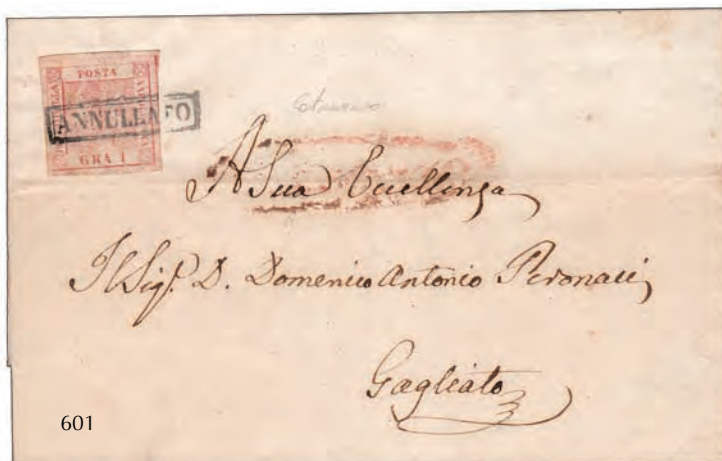 POSTA
ANNULLATO
GRA 1
A Sua Eccellenza
Il Sigr. D. Domenico Antonio Peronaci
Gagliato
601